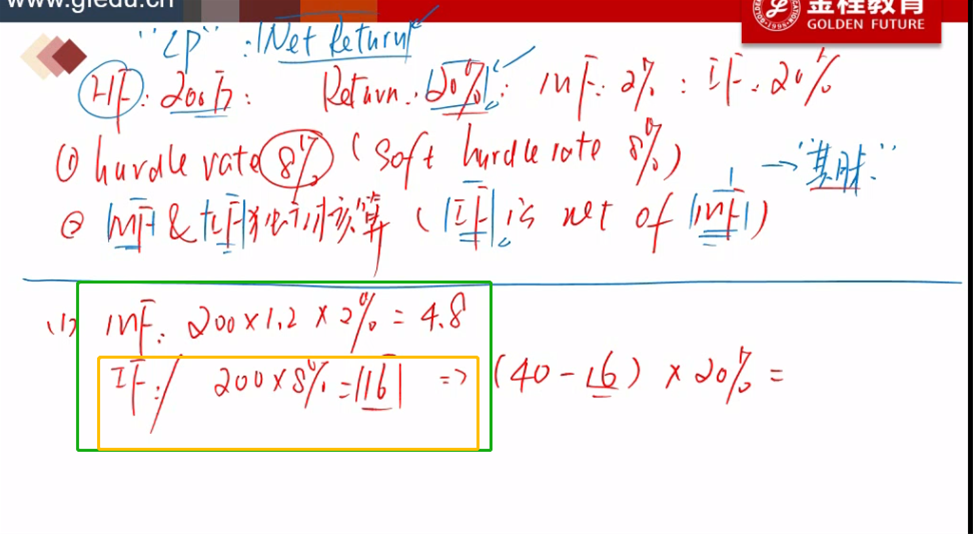 www.gfedu.cn
金程教育
GOLDEN FUTURE
"LP": Net Return
HF: 200万: Return: 20%: mF: 2%: IF: 20%
① hurdle rate 8% (soft hurdle rate 8%)
→ "其胖."
② mF & IF 独立计算 (IF is net of mF)
(1) mF: 200×1.2×2% = 4.8
IF: 200×8% = 16 => (40-16) × 20% =